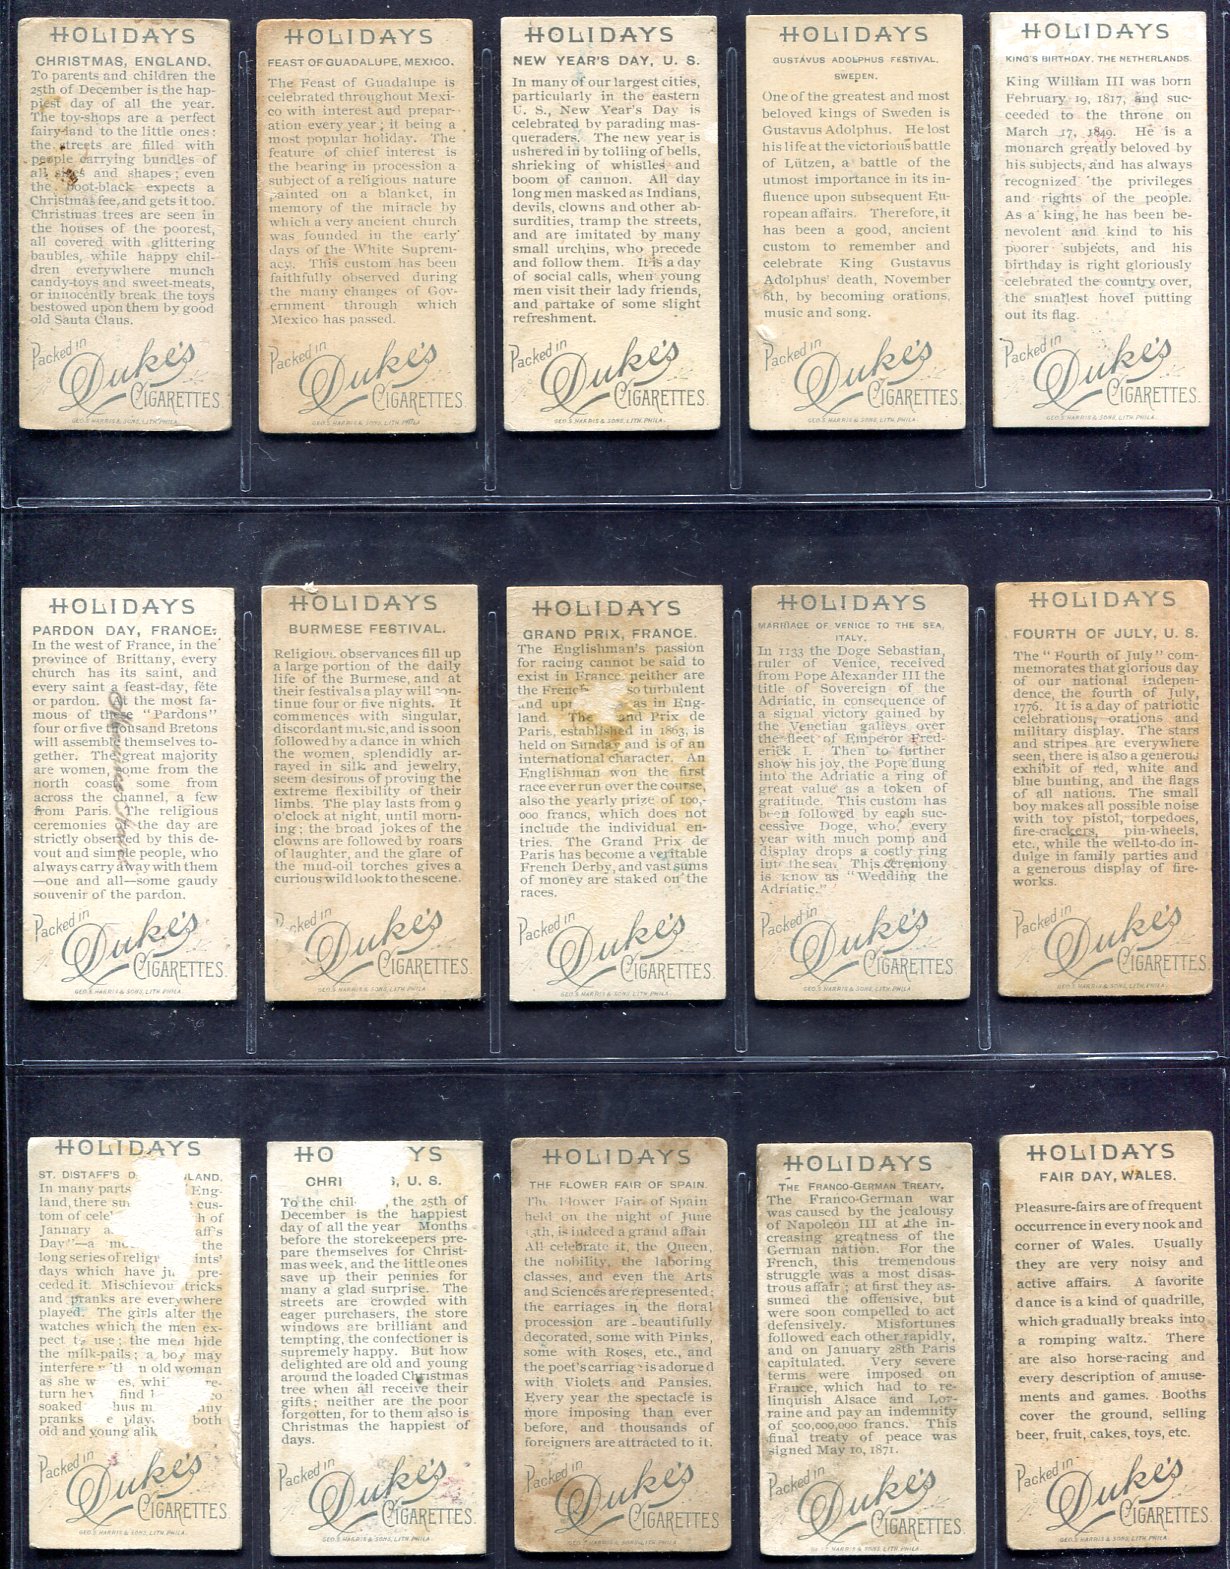 HOLIDAYS
CHRISTMAS, ENGLAND.
To parents and children the
25th of December is the hap-
piest day of all the year.
The toy-shops are a perfect
fairy-land to the little ones:
the streets are filled with
people carrying bundles of
all and shapes; even
the boot-black expects a
Christmas fee, and gets it too.
Christmas trees are seen in
the houses of the poorest,
all covered with glittering
baubles, while happy chil-
dren everywhere munch
candy-toys and sweet-meats,
or innocently break the toys
bestowed upon them by good
old Santa Claus.
Packed in
Duke's
CIGARETTES.
GEO. S. HARRIS & SONS, LITH. PHILA.
HOLIDAYS
FEAST OF GUADALUPE, MEXICO.
The Feast of Guadalupe is
celebrated throughout Mexi-
co with interest and prepar-
ation every year; it being a
most popular holiday. The
feature of chief interest is
the bearing in procession a
subject of a religious nature
painted on a blanket, in
memory of the miracle by
which a very ancient church
was founded in the early
days of the White Suprem-
acy. This custom has been
faithfully observed during
the many changes of Gov-
ernment through which
Mexico has passed.
Packed in
Duke's
CIGARETTES.
GEO. S. HARRIS & SONS, LITH. PHILA
HOLIDAYS
NEW YEAR'S DAY, U. S.
In many of our largest cities,
particularly in the eastern
U. S., New Year's Day is
celebrated by parading mas-
queraders. The new year is
ushered in by tolling of bells,
shrieking of whistles and
boom of cannon. All day
long men masked as Indians,
devils, clowns and other ab-
surdities, tramp the streets,
and are imitated by many
small urchins, who precede
and follow them. It is a day
of social calls, when young
men visit their lady friends,
and partake of some slight
refreshment.
Packed in
Duke's
CIGARETTES.
GEO. S. HARRIS & SONS, LITH. PHILA.
HOLIDAYS
GUSTAVUS ADOLPHUS FESTIVAL,
SWEDEN.
One of the greatest and most
beloved kings of Sweden is
Gustavus Adolphus. He lost
his life at the victorious battle
of Lützen, a battle of the
utmost importance in its in-
fluence upon subsequent Eu-
ropean affairs. Therefore, it
has been a good, ancient
custom to remember and
celebrate King Gustavus
Adolphus' death, November
6th, by becoming orations,
music and song.
Packed in
Duke's
CIGARETTES.
GEO. S. HARRIS & SONS, LITH. PHILA.
HOLIDAYS
KING'S BIRTHDAY, THE NETHERLANDS.
King William III was born
February 19, 1817, and suc-
ceeded to the throne on
March 17, 1849. He is a
monarch greatly beloved by
his subjects, and has always
recognized the privileges
and rights of the people.
As a king, he has been be-
nevolent and kind to his
poorer subjects, and his
birthday is right gloriously
celebrated the country over,
the smallest hovel putting
out its flag.
Packed in
Duke's
CIGARETTES.
GEO. S. HARRIS & SONS, LITH. PHILA.
HOLIDAYS
PARDON DAY, FRANCE.
In the west of France, in the
province of Brittany, every
church has its saint, and
every saint a feast-day, fête
or pardon. At the most fa-
mous of these "Pardons"
four or five thousand Bretons
will assemble themselves to-
gether. The great majority
are women, some from the
north coast, some from
across the channel, a few
from Paris. The religious
ceremonies of the day are
strictly observed by this de-
vout and simple people, who
always carry away with them
—one and all—some gaudy
souvenir of the pardon.
Packed in
Duke's
CIGARETTES.
GEO. S. HARRIS & SONS, LITH. PHILA
HOLIDAYS
BURMESE FESTIVAL.
Religious observances fill up
a large portion of the daily
life of the Burmese, and at
their festivals a play will con-
tinue four or five nights. It
commences with singular,
discordant music, and is soon
followed by a dance in which
the women, splendidly ar-
rayed in silk and jewelry,
seem desirous of proving the
extreme flexibility of their
limbs. The play lasts from 9
o'clock at night, until morn-
ing; the broad jokes of the
clowns are followed by roars
of laughter, and the glare of
the mud-oil torches gives a
curious wild look to the scene.
Packed in
Duke's
CIGARETTES.
GEO. S. HARRIS & SONS, LITH. PHILA
HOLIDAYS
GRAND PRIX, FRANCE.
The Englishman's passion
for racing cannot be said to
exist in France, neither are
the French so turbulent
and as in Eng-
land. The Grand Prix de
Paris, established in 1863, is
held on Sunday and is of an
international character. An
Englishman won the first
race ever run over the course,
also the yearly prize of 100,-
000 francs, which does not
include the individual en-
tries. The Grand Prix de
Paris has become a veritable
French Derby, and vast sums
of money are staked on the
races.
Packed in
Duke's
CIGARETTES.
GEO. S. HARRIS & SONS, LITH. PHILA
HOLIDAYS
MARRIAGE OF VENICE TO THE SEA,
ITALY.
In 1133 the Doge Sebastian,
ruler of Venice, received
from Pope Alexander III the
title of Sovereign of the
Adriatic, in consequence of
a signal victory gained by
the Venetian galleys over
the fleet of Emperor Fred-
erick I. Then to further
show his joy, the Pope flung
into the Adriatic a ring of
great value as a token of
gratitude. This custom has
been followed by each suc-
cessive Doge, who, every
year with much pomp and
display drops a costly ring
into the sea. This ceremony
is know as "Wedding the
Adriatic."
Packed in
Duke's
CIGARETTES.
GEO. S. HARRIS & SONS, LITH. PHILA.
HOLIDAYS
FOURTH OF JULY, U. S.
The "Fourth of July" com-
memorates that glorious day
of our national indepen-
dence, the fourth of July,
1776. It is a day of patriotic
celebrations, orations and
military display. The stars
and stripes are everywhere
seen, there is also a generous
exhibit of red, white and
blue bunting, and the flags
of all nations. The small
boy makes all possible noise
with toy pistol, torpedoes,
fire-crackers, pin-wheels,
etc., while the well-to-do in-
dulge in family parties and
a generous display of fire-
works.
Packed in
Duke's
CIGARETTES
GEO. S. HARRIS & SONS, LITH. PHILA
HOLIDAYS
ST. DISTAFF'S
In many parts Eng-
land, there cus-
tom of of
January
Day"—a the
long series of
days which have pre-
ceded it. Mischievous tricks
and pranks are everywhere
played. The girls alter the
watches which the men ex-
pect to use; the men hide
the milk-pails; a boy may
interfere with an old woman
as she
turn find
soaked
pranks both
old and young
Packed in
Duke's
CIGARETTES.
GEO. S. HARRIS & SONS, LITH. PHILA.
HO YS
CHRI S, U. S.
To the the 25th of
December is the happiest
day of all the year Months
before the storekeepers pre-
pare themselves for Christ-
mas week, and the little ones
save up their pennies for
many a glad surprise. The
streets are crowded with
eager purchasers, the store
windows are brilliant and
tempting, the confectioner is
supremely happy. But how
delighted are old and young
around the loaded Christmas
tree when all receive their
gifts; neither are the poor
forgotten, for to them also is
Christmas the happiest of
days.
Packed in
Duke's
CIGARETTES.
GEO. S. HARRIS & SONS, LITH. PHILA
HOLIDAYS
THE FLOWER FAIR OF SPAIN.
The Flower Fair of Spain
held on the night of June
is indeed a grand affair
All celebrate it, the Queen,
the nobility, the laboring
classes, and even the Arts
and Sciences are represented;
the carriages in the floral
procession are beautifully
decorated, some with Pinks,
some with Roses, etc., and
the poet's carriage is adorned
with Violets and Pansies.
Every year the spectacle is
more imposing than ever
before, and thousands of
foreigners are attracted to it.
Packed in
Duke's
CIGARETTES.
GEO. S. HARRIS & SONS, LITH. PHILA.
HOLIDAYS
THE FRANCO-GERMAN TREATY,
The Franco-German war
was caused by the jealousy
of Napoleon III at the in-
creasing greatness of the
German nation. For the
French, this tremendous
struggle was a most disas-
trous affair; at first they as-
sumed the offensive, but
were soon compelled to act
defensively. Misfortunes
followed each other rapidly,
and on January 28th Paris
capitulated. Very severe
terms were imposed on
France, which had to re-
linquish Alsace and Lor-
raine and pay an indemnity
of 500,000,000 francs. This
final treaty of peace was
signed May 10, 1871.
Packed in
Duke's
CIGARETTES.
HARRIS & SONS, LITH. PHILA.
HOLIDAYS
FAIR DAY, WALES.
Pleasure-fairs are of frequent
occurrence in every nook and
corner of Wales. Usually
they are very noisy and
active affairs. A favorite
dance is a kind of quadrille,
which gradually breaks into
a romping waltz. There
are also horse-racing and
every description of amuse-
ments and games. Booths
cover the ground, selling
beer, fruit, cakes, toys, etc.
Packed in
Duke's
CIGARETTES.
GEO. S. HARRIS & SONS, LITH. PHILA.